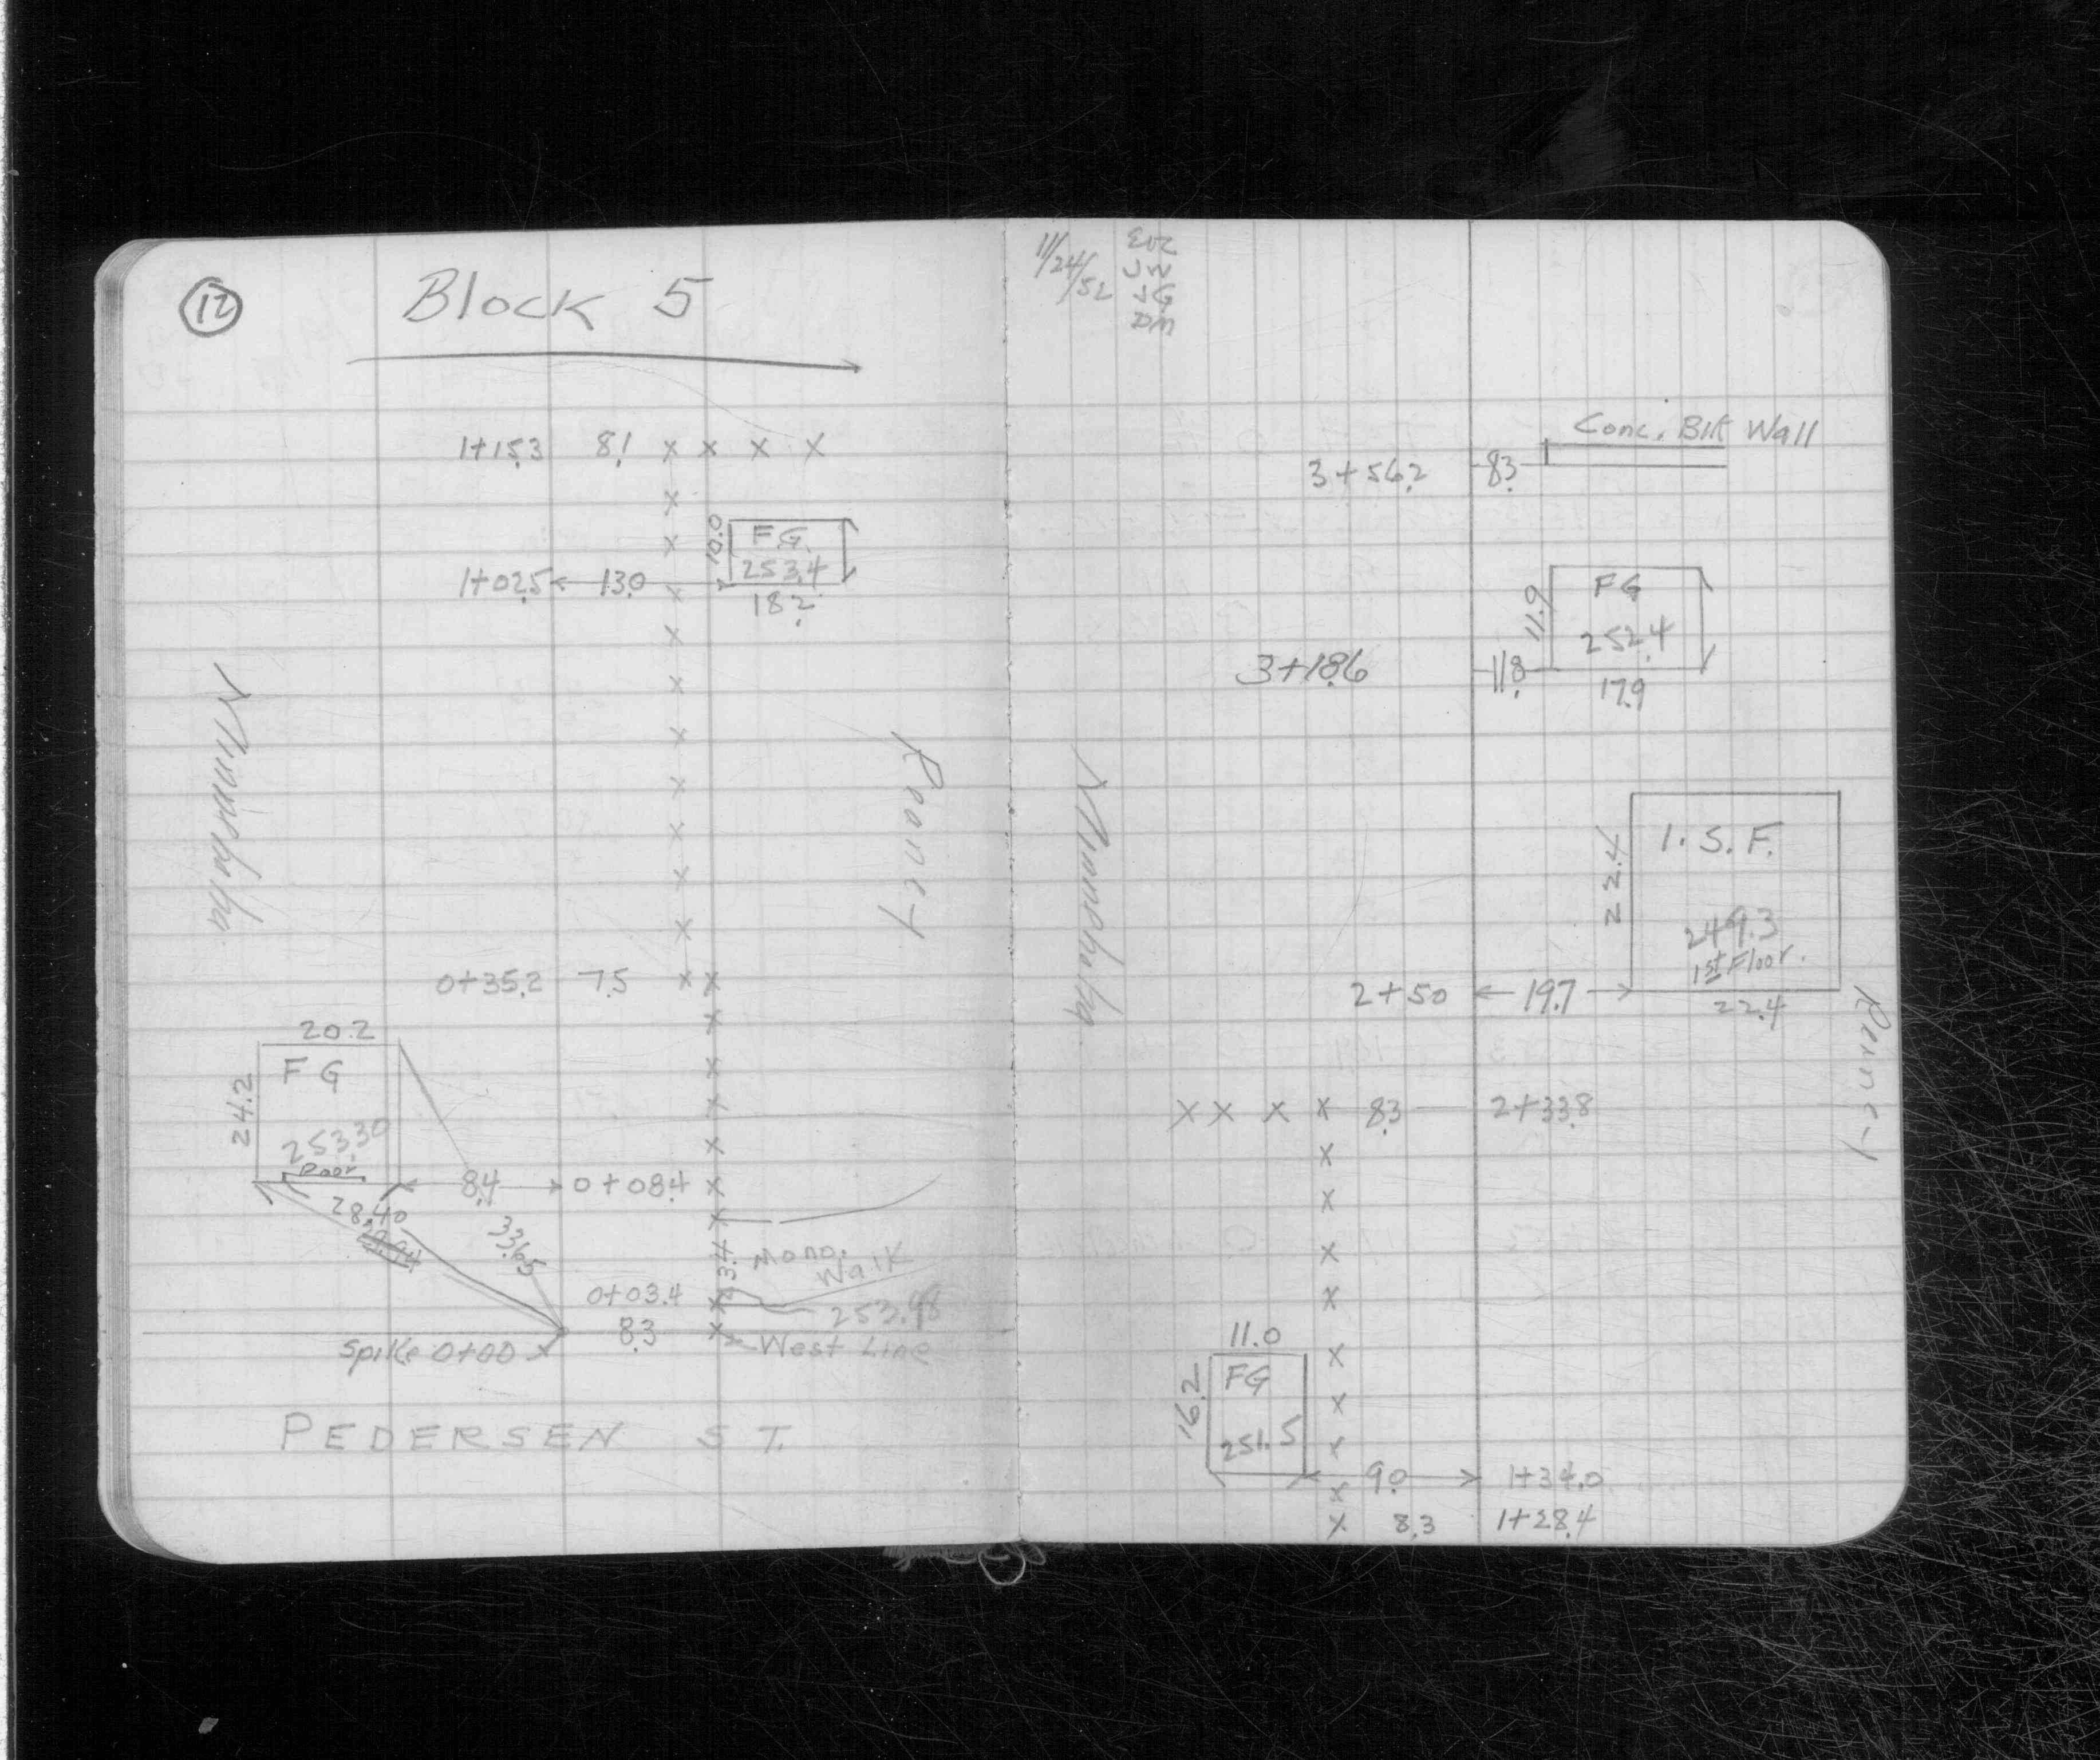 12
Block 5
1+15.3 8.1 x x x x
10.0
F.G.
253.4
1+02.5 13.0
18.2
Minnehaha
Rooney
0+35.2 7.5 x x
20.2
F G
24.2
253.30
Door
8.4 0+08.4 x
28.40
33.65
13.4
Mono.
Walk
0+03.4
253.98
8.3
West Line
Spike 0+00
PEDERSEN ST.
11/24/52
JW
JG
DM
Conc. Blk Wall
3+56.2 8.3
FG
11.9
252.4
3+18.6 11.8
17.9
Minnehaha
1. S. F.
22.4
249.3
1st Floor.
2+50 19.7
22.4
Rooney
x x x x 8.3 2+33.8
11.0
FG
16.2
251.5
9.0 1+34.0
x 8.3 1+28.4